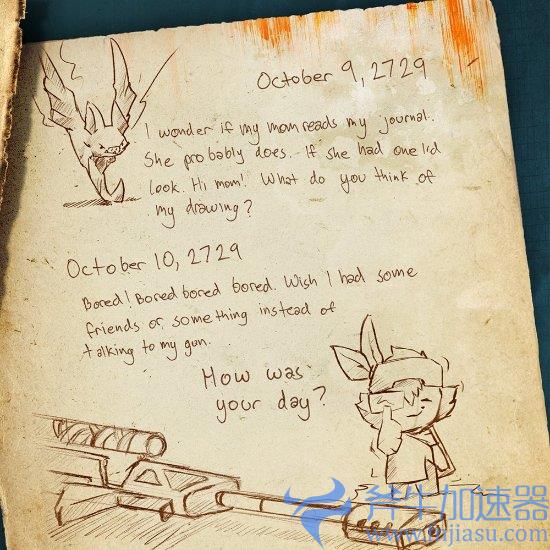 October 9, 2729
I wonder if my mom reads my journal.
She probably does. If she had one I'd
look. Hi mom! What do you think of
my drawing?
October 10, 2729
Bored! Bored bored bored. Wish I had some
friends or something instead of
talking to my gun.
How was
your day?
斧牛加速器
www.fnjiasu.com